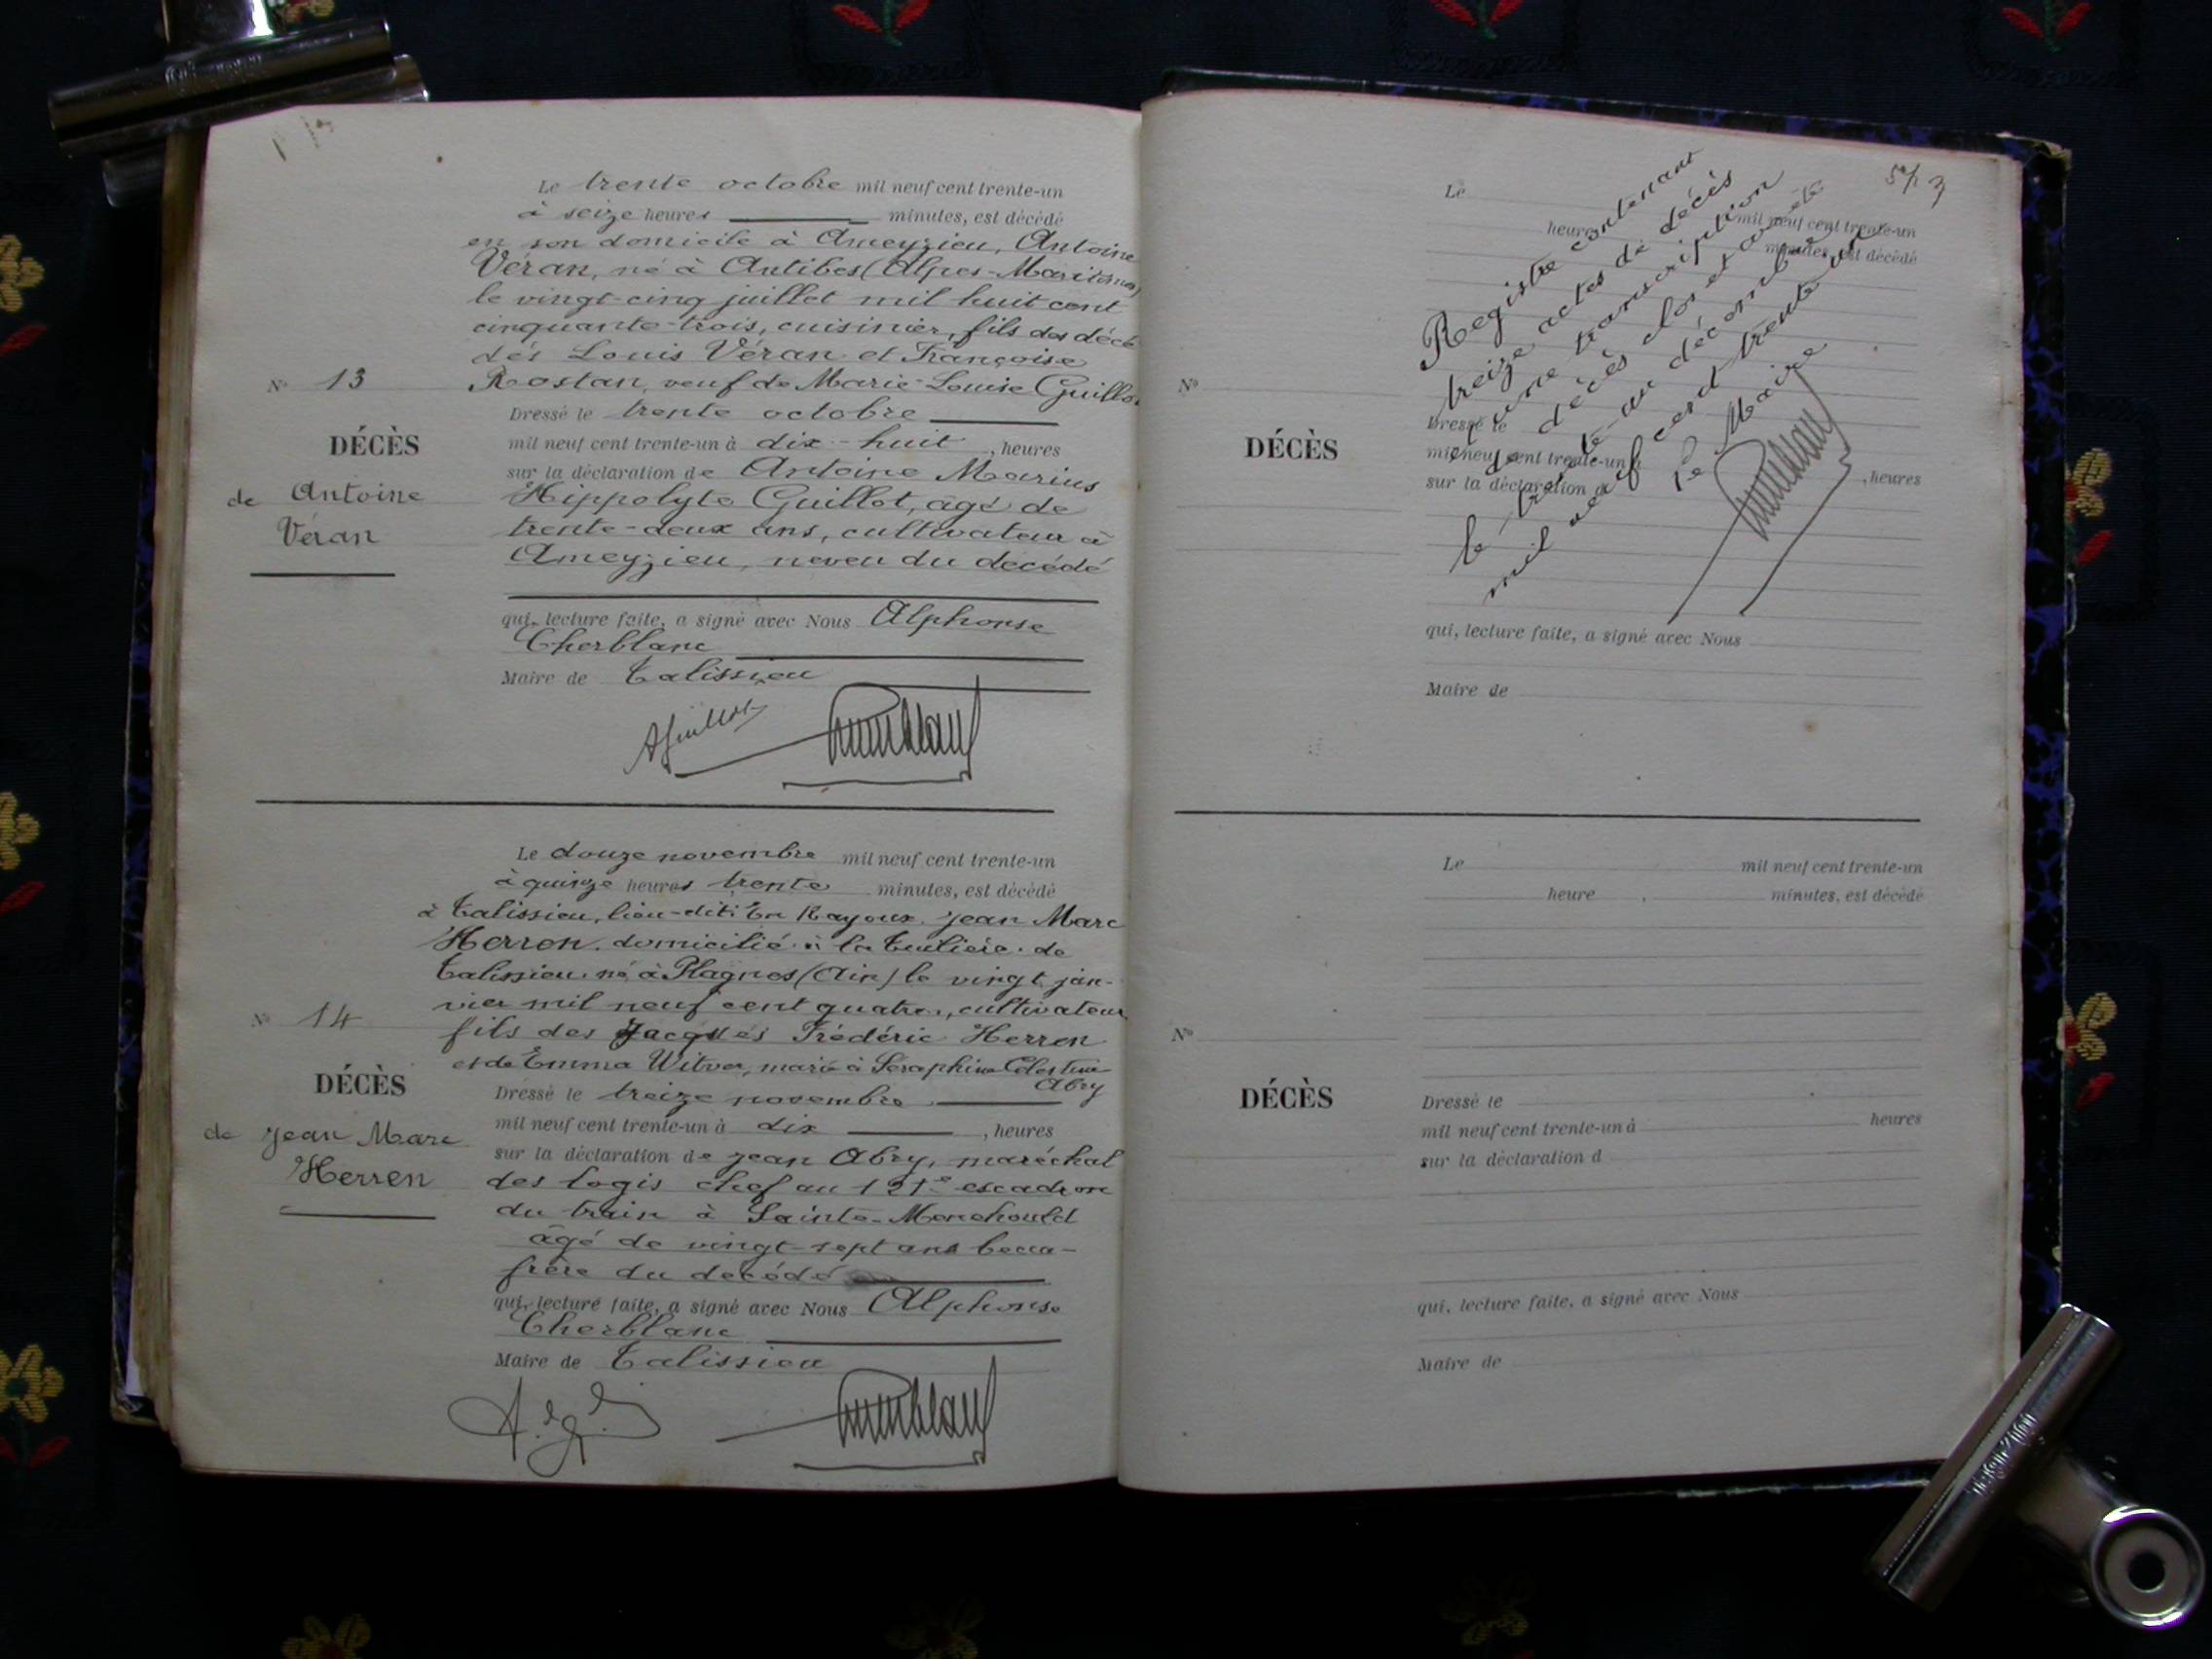 Le trente octobre mil neuf cent trente-un
à seize heures minutes, est décédé
en son domicile à Ameyzieu, Antoine
Véran, né à Antibes (Alpes-Maritimes)
le vingt-cinq juillet mil huit cent
cinquante-trois, cuisinier, fils des décé
dés Louis Véran et Françoise
Rostan, veuf de Marie-Louise Guillot
N° 13
DÉCÈS
de Antoine
Véran
Dressé le trente octobre
mil neuf cent trente-un à dix-huit, heures
sur la déclaration de Antoine Marius
Hippolyte Guillot, âgé de
trente-deux ans, cultivateur à
Ameyzieu, neveu du décédé
qui, lecture faite, a signé avec Nous Alphonse
Cherblanc
Maire de Talissieu
AGuillot
Le douze novembre mil neuf cent trente-un
à quinze heures trente minutes, est décédé
à Talissieu, lieu-dit: En Rayoux. Jean Marc
Herren. domicilié à la Tuilière. de
Talissieu. né à Plagnes (Ain) le vingt jan-
vier mil neuf cent quatre, cultivateur
fils des Jacques Frédéric Herren
et de Emma Witver, marié à Séraphine Célestine
Abry
N° 14
DÉCÈS
de Jean Marc
Herren
Dressé le treize novembre
mil neuf cent trente-un à dix, heures
sur la déclaration de Jean Abry, maréchal
des logis chef au 121e escadron
du train à Sainte-Menehould
âgé de vingt-sept ans beau-
frère du décédé
qui, lecture faite, a signé avec Nous Alphonse
Cherblanc
Maire de Talissieu
Le mil neuf cent trente-un
heures minutes, est décédé
Registre contenant
treize actes de décès
et une transcription
de décès clos et arrêté
le trente-un décembre
mil neuf cent trente un
le Maire
N°
DÉCÈS
Dressé le
mil neuf cent trente-un à, heures
sur la déclaration d
qui, lecture faite, a signé avec Nous
Maire de
Le mil neuf cent trente-un
heure minutes, est décédé
N°
DÉCÈS
Dressé le
mil neuf cent trente-un à heures
sur la déclaration d
qui, lecture faite, a signé avec Nous
Maire de